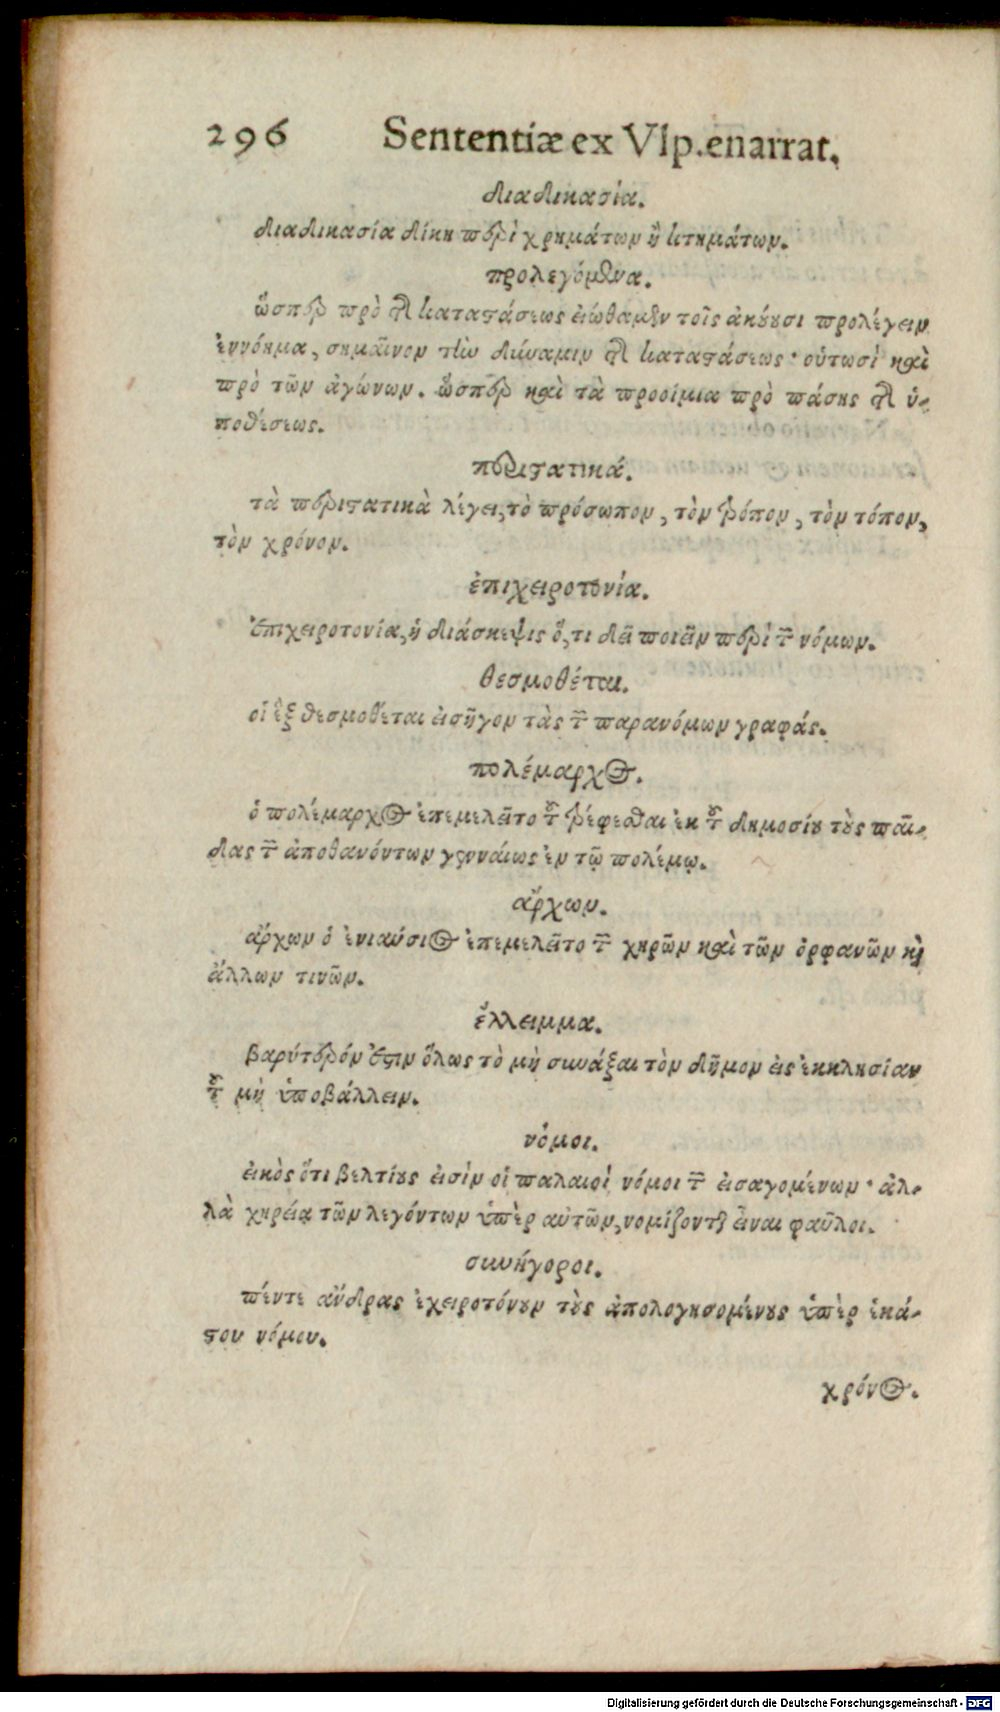 296 Sententiæ ex Vlp. enarrat.
διαδικασία.
διαδικασία δίκη περὶ χρημάτων ἢ κτημάτων.
προλεγόμενα.
ὥσπερ πρὸ τῆς καταστάσεως εἰώθαμεν τοῖς ἀκούουσι προλέγειν
ἐννόημα, σημαῖνον τὴν δύναμιν τῆς καταστάσεως· οὑτωσὶ καὶ
πρὸ τῶν ἀγώνων. ὥσπερ καὶ τὰ προοίμια πρὸ πάσης τῆς ὑ-
ποθέσεως.
περιστατικά.
τὰ περιστατικὰ λέγει, τὸ πρόσωπον, τὸν τρόπον, τὸν τόπον,
τὸν χρόνον.
ἐπιχειροτονία.
ἐπιχειροτονία, ἡ διάσκεψις ὅ, τι δεῖ ποιεῖν περὶ τῶν νόμων.
θεσμοθέται.
οἱ ἓξ θεσμοθέται εἰσῆγον τὰς τῶν παρανόμων γραφάς.
πολέμαρχος.
ὁ πολέμαρχος ἐπεμελεῖτο τοῦ τρέφεσθαι ἐκ τοῦ δημοσίου τοὺς παῖ-
δας τῶν ἀποθανόντων γενναίως ἐν τῷ πολέμῳ.
ἄρχων.
ἄρχων ὁ ἐνιαύσιος ἐπεμελεῖτο τῶν χηρῶν καὶ τῶν ὀρφανῶν καὶ
ἄλλων τινῶν.
ἔλλειμμα.
βαρύτερόν ἐστιν ὅλως τὸ μὴ συνάξαι τὸν δῆμον εἰς ἐκκλησίαν
τοῦ μὴ ὑποβάλλειν.
νόμοι.
εἰκὸς ὅτι βελτίους εἰσὶν οἱ παλαιοὶ νόμοι τῶν εἰσαγομένων· ἀλ-
λὰ χρείᾳ τῶν λεγόντων ὑπὲρ αὐτῶν, νομίζονται εἶναι φαῦλοι.
συνήγοροι.
πέντε ἄνδρας ἐχειροτόνουν τοὺς ἀπολογησομένους ὑπὲρ ἑκά-
στου νόμου.
χρόνος.
Digitalisierung gefördert durch die Deutsche Forschungsgemeinschaft - DFG